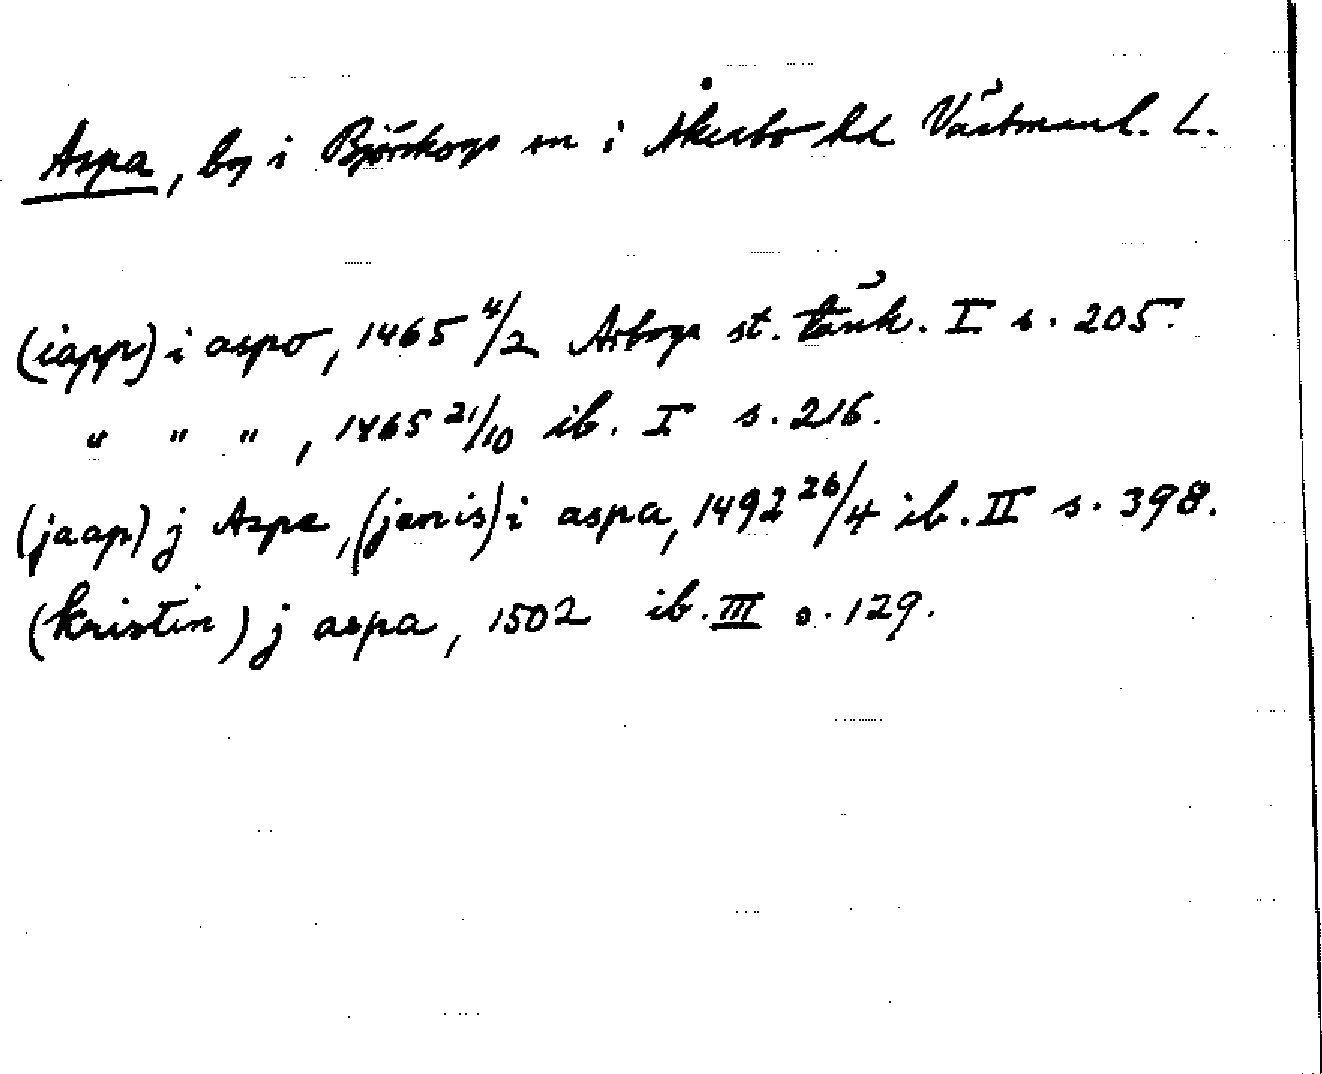 Aspa, by i Björskogs sn i Åkerbo hd Västmanl. L.
(iapp) i aspo, 1465 4/2 Arboga st. tänk. I s. 205.
" " " , 1465 21/10 ib. I s. 216.
(jaap) j Aspe, (jenis) i aspa, 1492 26/4 ib. II s. 398.
(kristin) j aspa, 1502 ib. III s. 129.